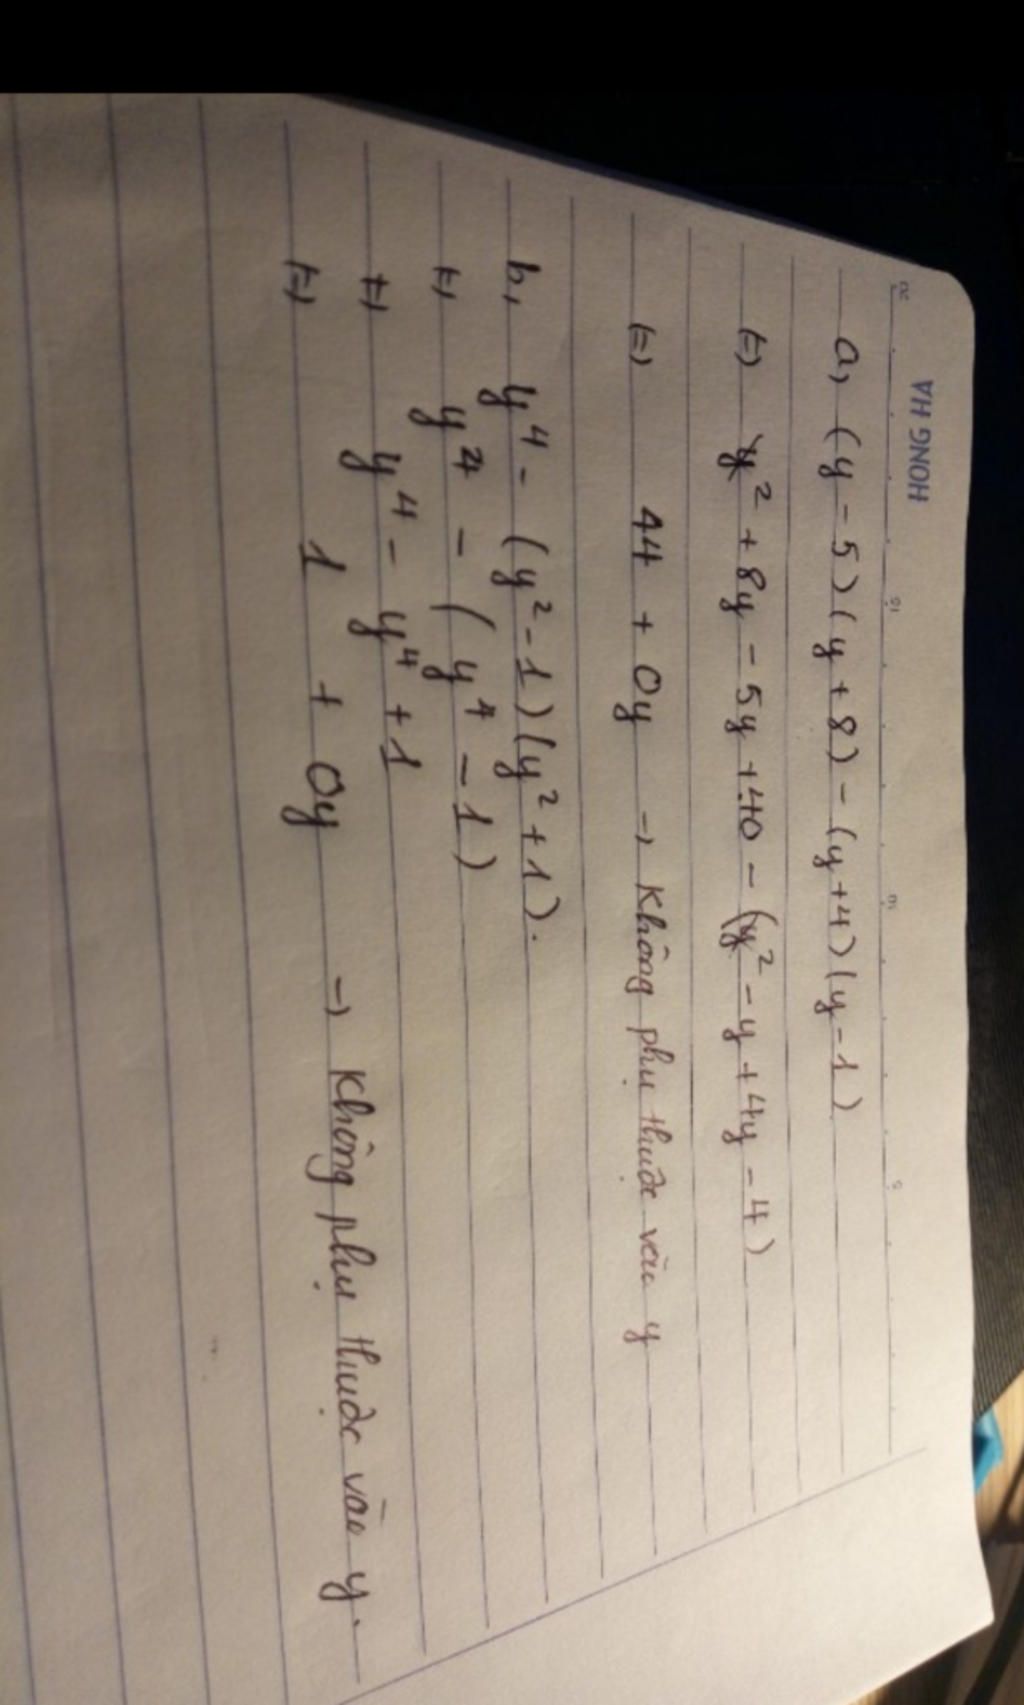 HONG HA
20 15 10 5
a, (y - 5)(y + 8) - (y + 4)(y - 1)
(=) y² + 8y - 5y + 40 - (y² - y + 4y - 4)
(=) 44 + 0y → Không phụ thuộc vào y
b, y⁴ - (y² - 1)(y² + 1).
(=) y⁴ - (y⁴ - 1)
(=) y⁴ - y⁴ + 1
(=) 1 + 0y → Không phụ thuộc vào y.